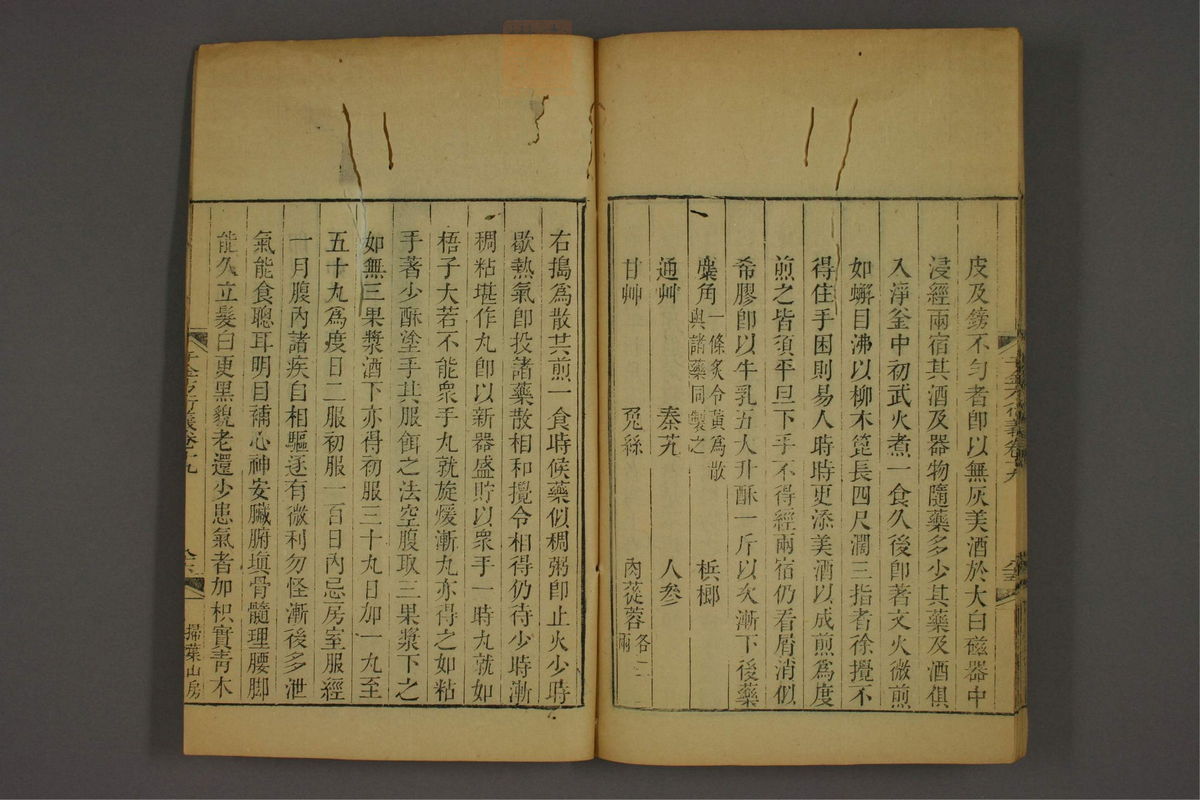 皮及鎊不勻者卽以無灰美酒於大白磁器中
浸經兩宿其酒及器物隨藥多少其藥及酒俱
入淨釜中初武火煮一食久後卽著文火微煎
如蠏目沸以柳木篦長四尺濶三指者徐攪不
得住手困則易人時時更添美酒以成煎爲度
煎之皆須平旦下手不得經兩宿仍看屑消似
希膠卽以牛乳五大升酥一斤以次漸下後藥
麋角一條炙令黃爲散與諸藥同製之 檳榔
通艸 秦艽 人參
甘艸 兔絲 肉蓯蓉各二兩
右搗爲散共煎一食時候藥似稠粥卽止火少時
歇熱氣卽投諸藥散相和攪令相得仍待少時漸
稠粘堪作丸卽以新器盛貯以衆手一時丸就如
梧子大若不能衆手丸就旋煖漸丸亦得之如粘
手著少酥塗手其服餌之法空腹取三果漿下之
如無三果漿酒下亦得初服三十九日加一丸至
五十丸爲度日二服初服一百日內忌房室服經
一月腹內諸疾自相驅逐有微利勿怪漸後多泄
氣能食聰耳明目補心神安臟腑塡骨髓理腰脚
能久立髮白更黑貌老還少患氣者加枳實靑木
掃葉山房